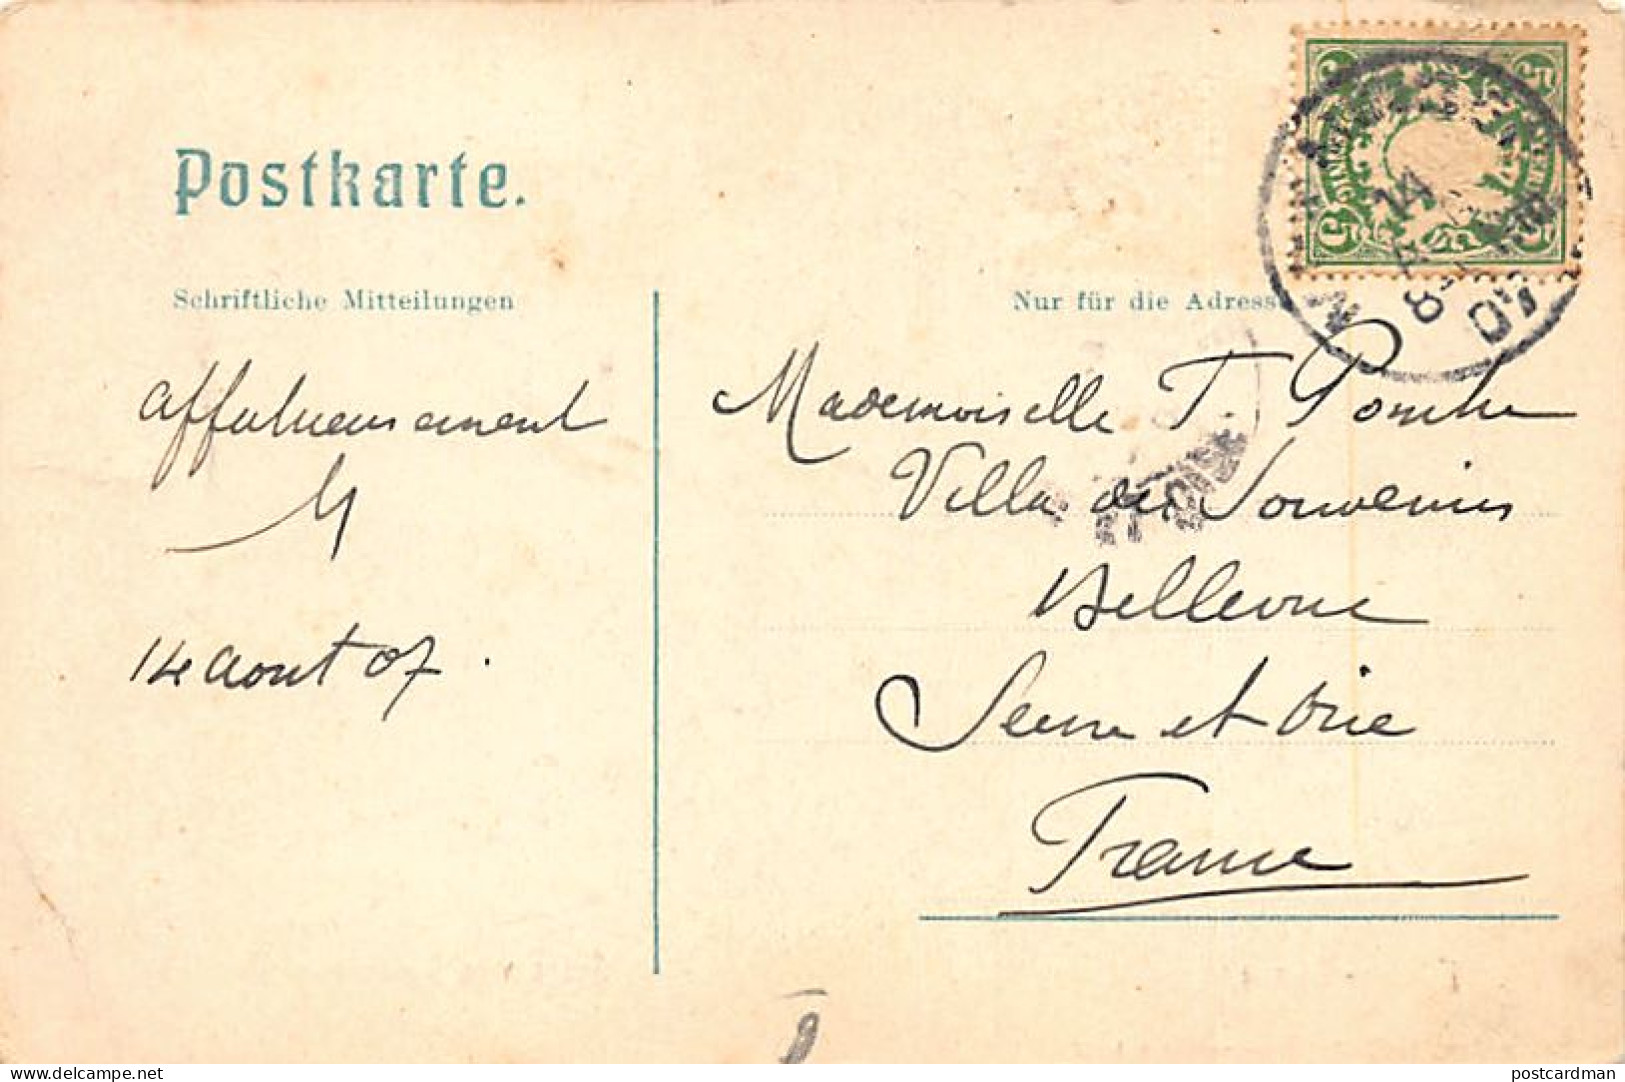 Postkarte.
Schriftliche Mitteilungen
Nur für die Adresse
affectueusement
M
14 aout 07.
Mademoiselle T.
Villa des Souvenirs
Bellevue
Seine et Oise
France
5 5
5
14
8
delcampe.net
postcardman